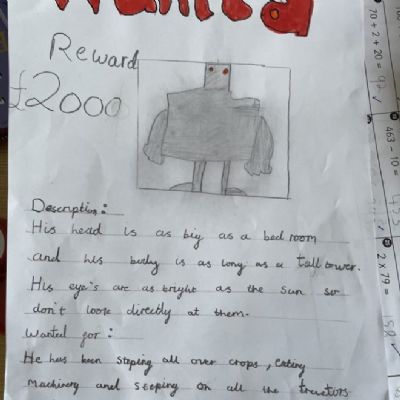 Wanted
Reward
£2000
Description:
His head is as big as a bed room
and his body is as long as a tall tower.
His eye's are as bright as the sun so
don't look directly at them.
Wanted for:
He has been stoping all over crops, eating
machinery and seeping on all the tractors.
70 + 2 + 20 =
463 - 10 =
2 x 79 =